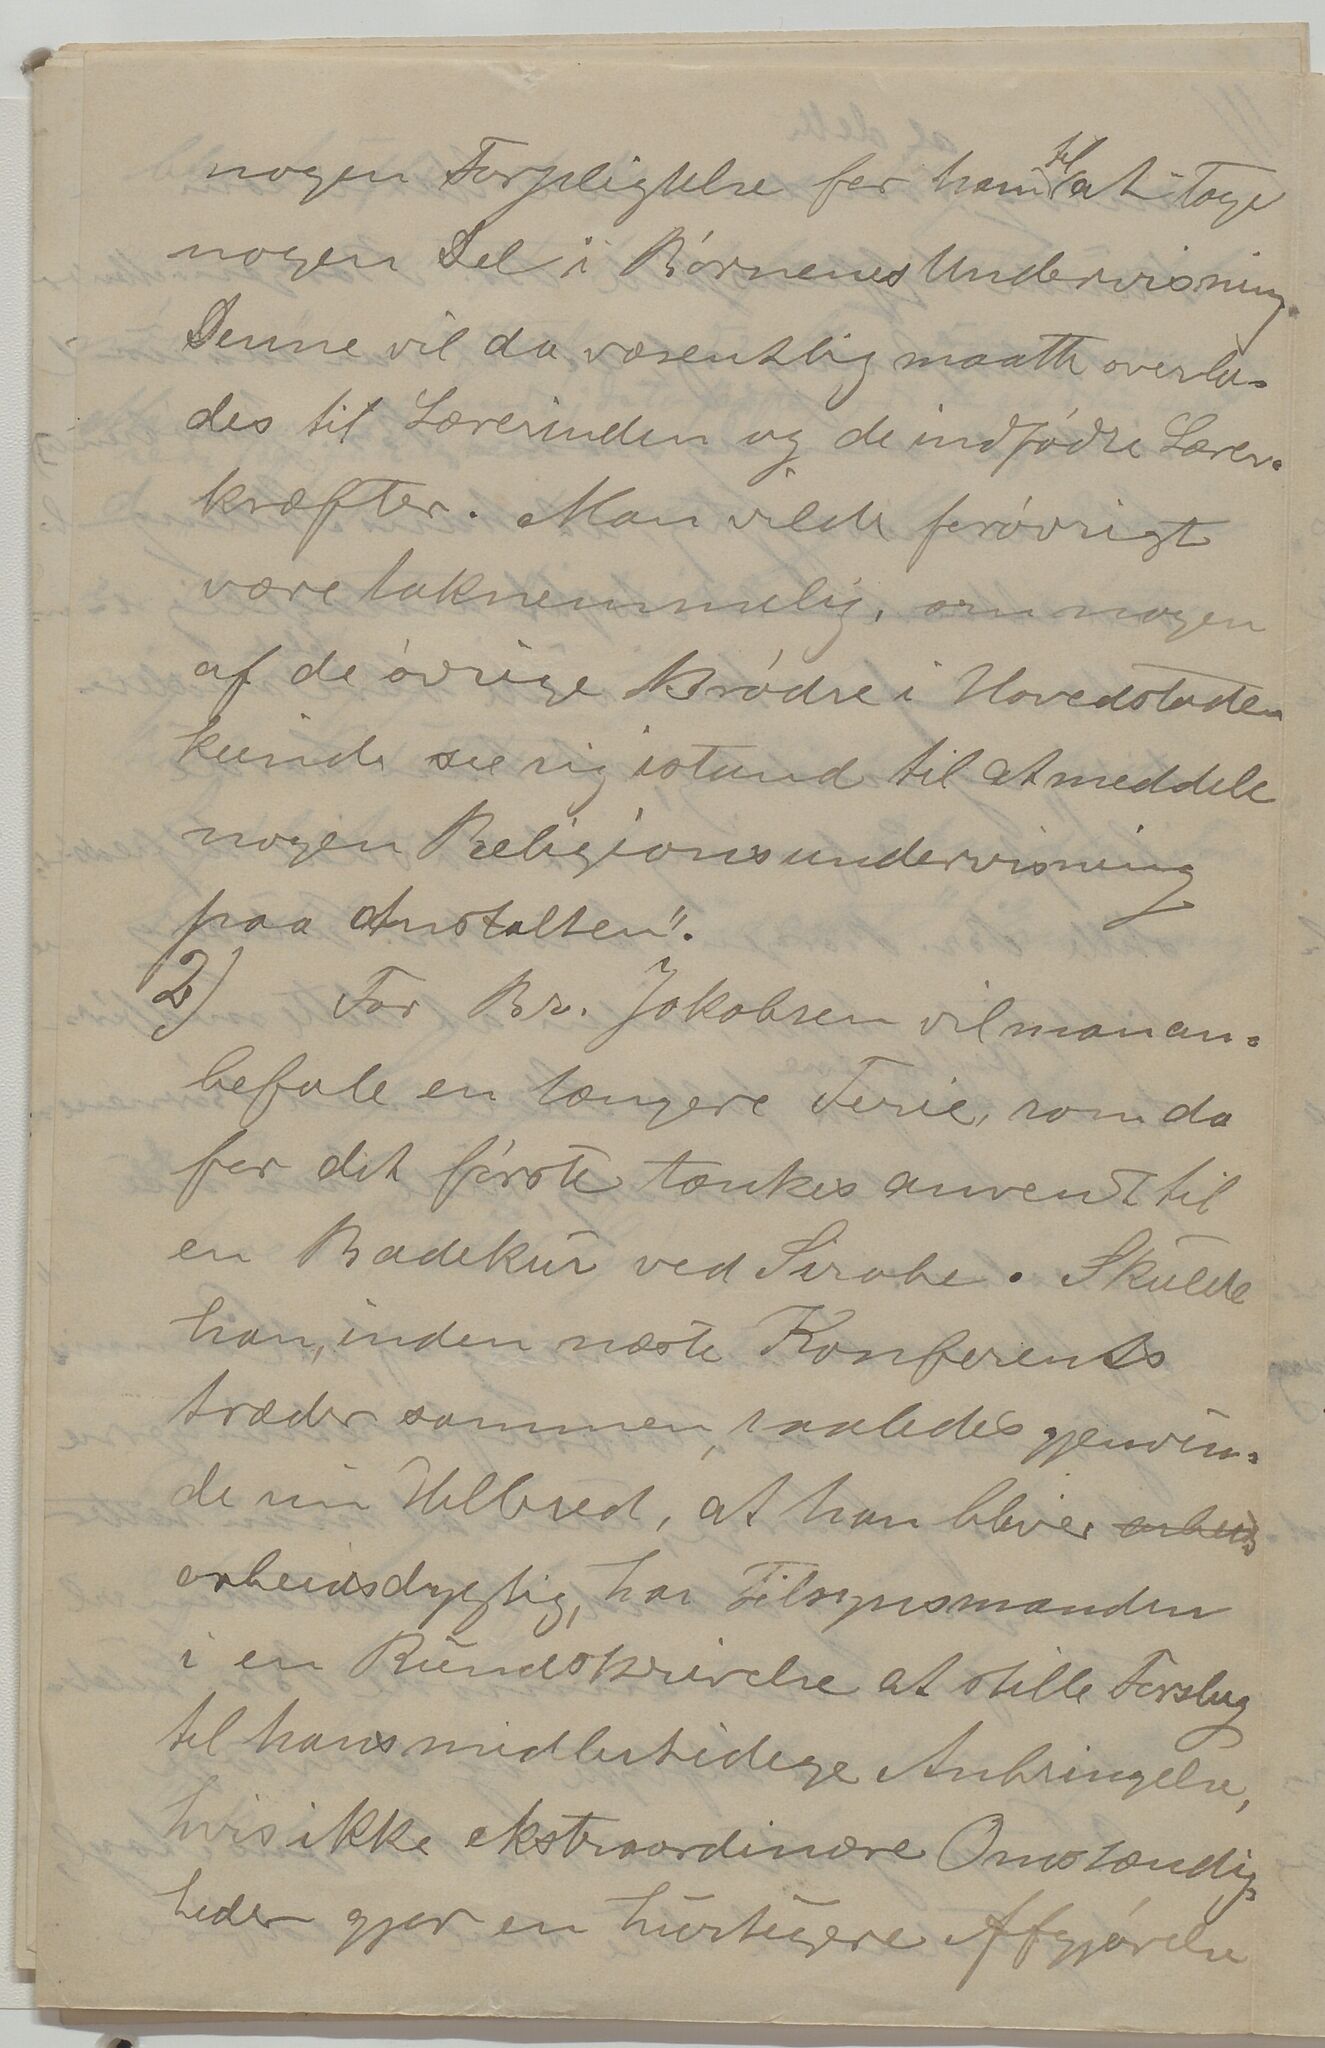 nogen Forpligtelse for ham til at tage
nogen Del i Børnenes Undervisning.
Denne vil da væsentlig maatte overla-
des til Lærerinden og de indfødte Lærer-
kræfter. Man vilde forøvrigt
være taknemmelig, om nogen
af de øvrige Brødre i Hovedstaden
kunde see sig istand til at meddele
nogen Religionsundervisning
paa Anstalten".
2) For Br. Jakobsen vil man an-
befale en længere Ferie, som da
for det første tænkes anvendt til
en Badekur ved Sirabe. Skulde
han, inden næste Konferents
træder sammen, saaledes gjenvin-
de sin Helbred, at han bliver arbeids
arbeidsdygtig, har Tilsynsmanden
i en Rundskrivelse at stille Forslag
til hans midlertidige Anbringelse,
hvis ikke ekstraordinære Omstændig-
heder gjør en hurtigere Afgjørelse